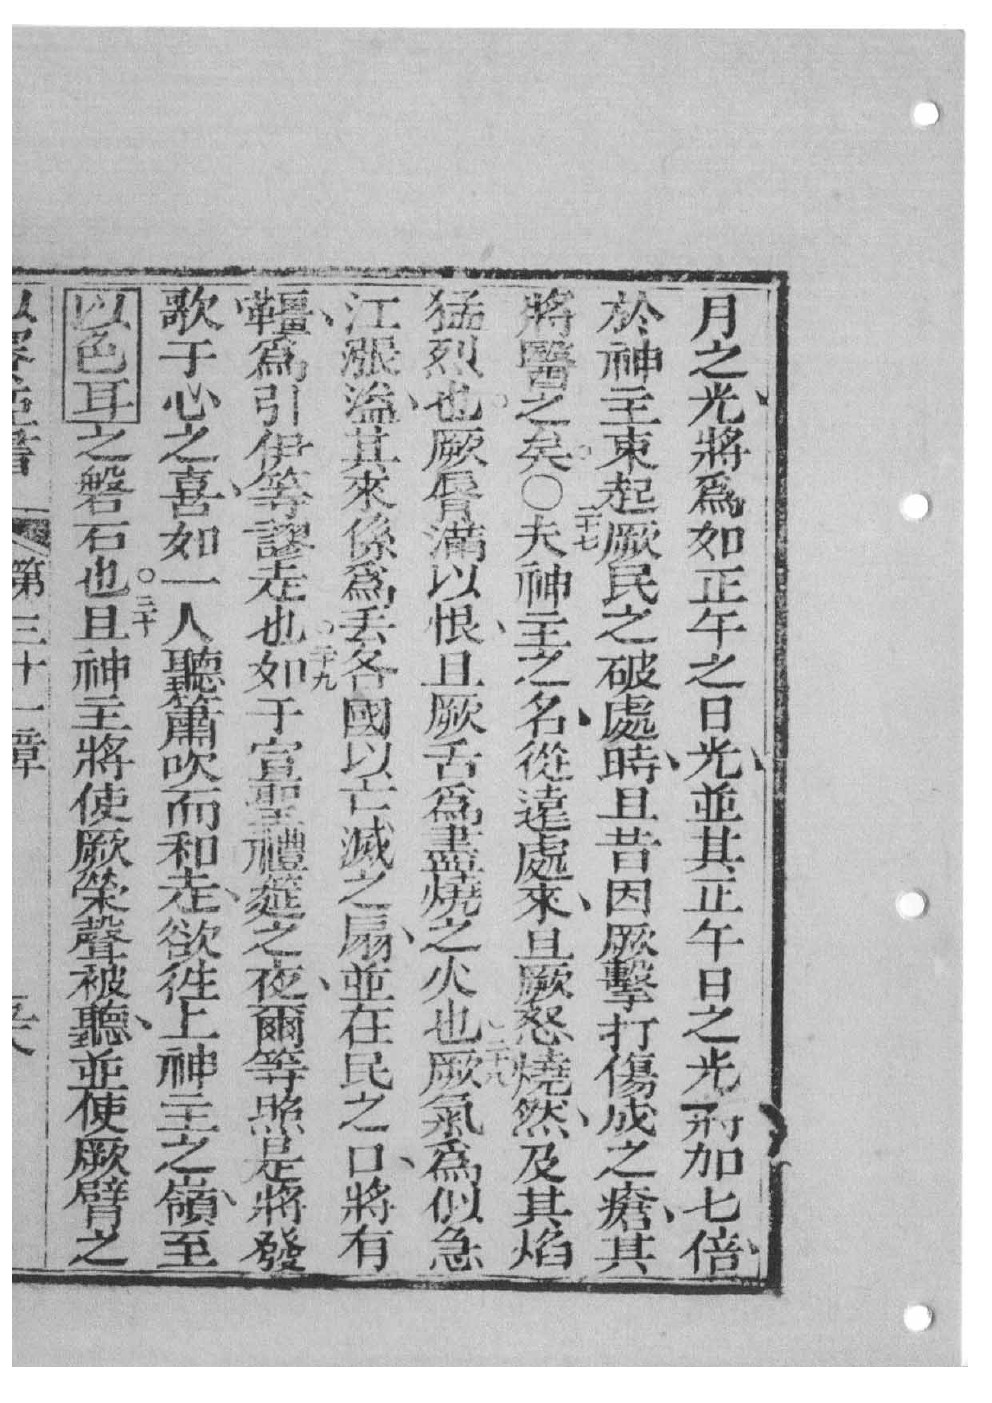 月之光、將爲如正午之日光、並其正午日之光將加七倍、
於神主東起厥民之破處時、且昔因厥擊打傷成之瘡、其
將醫之矣。○二十七夫神主之名、從遠處來、且厥怒燒然、及其焰
猛烈也。厥唇滿以恨、且厥舌爲盡燒之火也。二十八厥氣爲似急
江漲溢、其來係爲丢各國以亡滅之扇、並在民之口、將有
韁、爲引伊等謬走也。二十九如于宣聖禮筵之夜、爾等照是將發
歌于心之喜、如一人聽簫吹而和走、欲徃上神主之嶺、至
以色耳之磐石也。三十且神主將使厥榮聲被聽、並使厥臂之
第三十一章